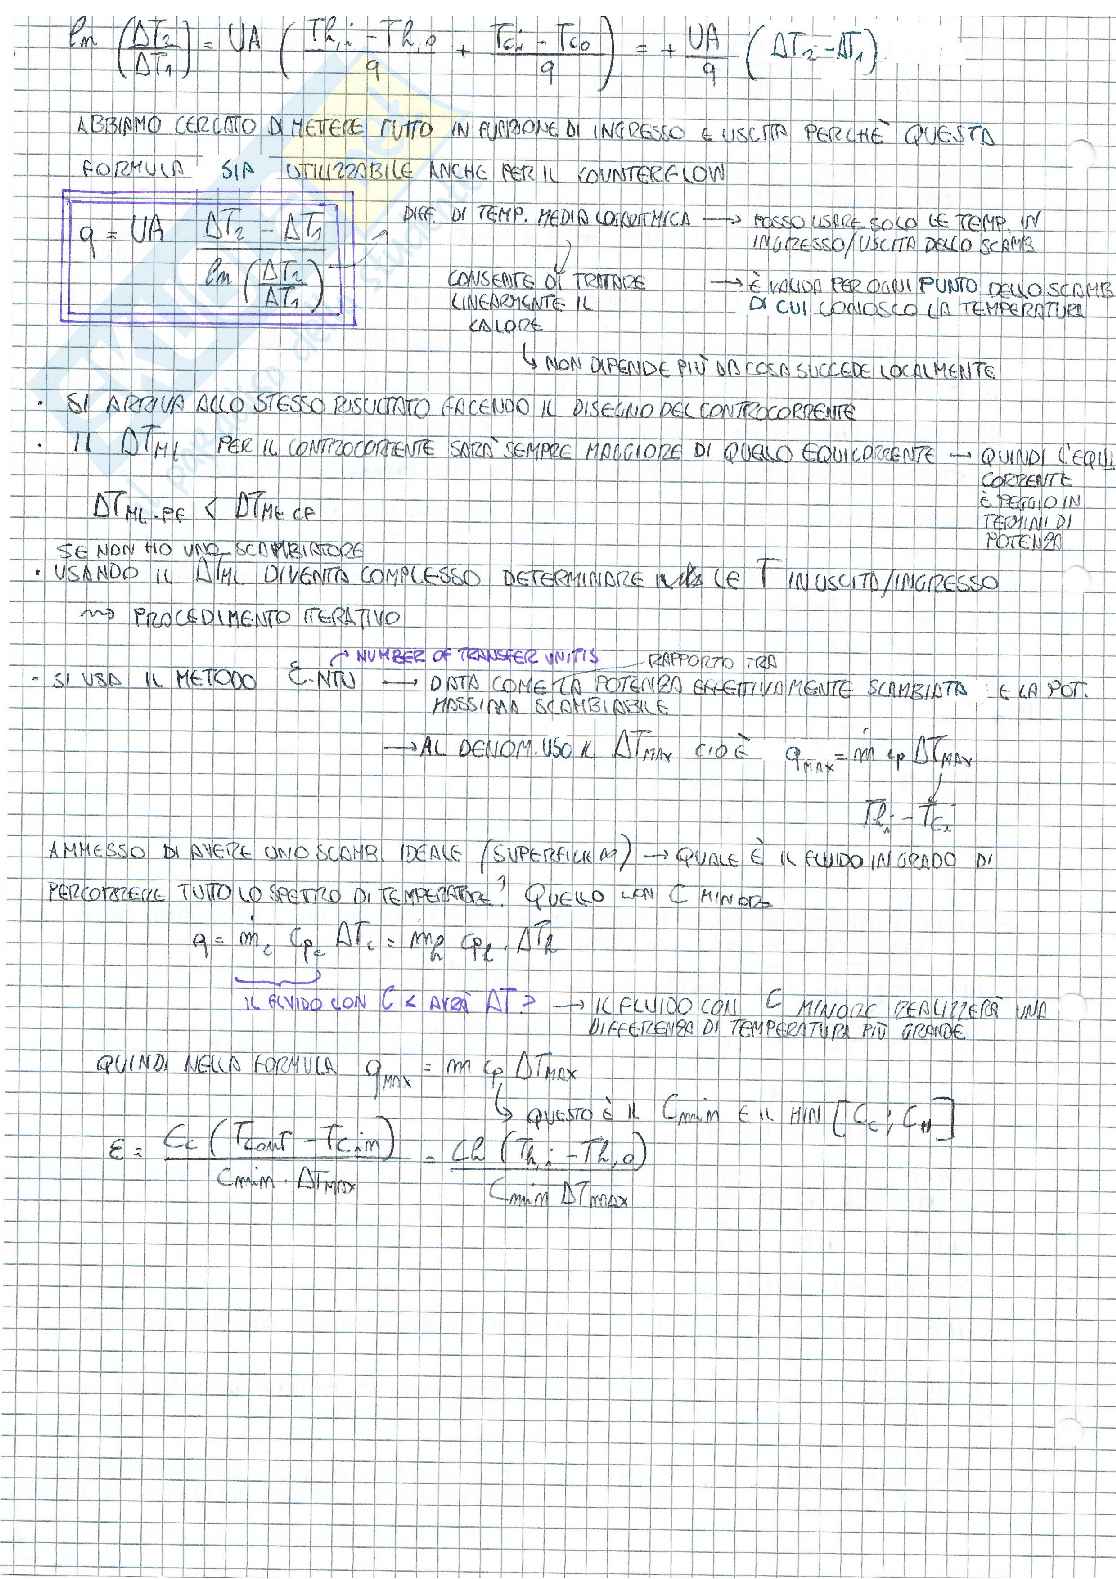 ln (ΔT2/ΔT1) = UA ( (Th,i - Th,o)/q + (Tci - Tco)/q ) = + UA/q ( ΔT2 - ΔT1 )
ABBIAMO CERCATO DI METERE TUTTO IN FUNZIONE DI INGRESSO E USCITA PERCHÈ QUESTA
FORMULA SIA UTILIZZABILE ANCHE PER IL COUNTERFLOW
q = UA (ΔT2 - ΔT1) / ln (ΔT2/ΔT1)
DIFF. DI TEMP. MEDIA LOGARITMICA → POSSO USARE SOLO LE TEMP. IN
INGRESSO/USCITA DELLO SCAMB
CONSENTE DI TRATTARE → È VALIDA PER OGNI PUNTO DELLO SCAMB
LINEARMENTE IL DI CUI CONOSCO LA TEMPERATURA
CALORE
↳ NON DIPENDE PIÙ DA COSA SUCCEDE LOCALMENTE
· SI ARRIVA ALLO STESSO RISULTATO FACENDO IL DISEGNO DEL CONTROCORRENTE
· IL ΔTML PER IL CONTROCORRENTE SARÀ SEMPRE MAGGIORE DI QUELLO EQUICORRENTE → QUINDI L'EQUI
CORRENTE
È PEGGIO IN
TERMINI DI
POTENZA
ΔTML-PF < ΔTML CF
SE NON HO UNO SCAMBIATORE
· USANDO IL ΔTML DIVENTA COMPLESSO DETERMINARE LE T IN USCITA/INGRESSO
⇝ PROCEDIMENTO ITERATIVO
NUMBER OF TRANSFER UNITIS RAPPORTO TRA
· SI USA IL METODO Ɛ-NTU → DATA COME LA POTENZA EFFETTIVAMENTE SCAMBIATA E LA POT.
MASSIMA SCAMBIABILE
→ AL DENOM. USO IL ΔTMAX CIOÈ qMAX = ṁ cp ΔTMAX
Thi - Tci
AMMESSO DI AVERE UNO SCAMB. IDEALE (SUPERFICIE ∞) → QUALE È IL FLUIDO IN GRADO DI
PERCORRERE TUTTO LO SPETTRO DI TEMPERATURE? QUELLO CON C MINORE
q = ṁc cpc ΔTc = ṁh cph · ΔTh
IL FLUIDO CON C < AVRÀ ΔT > → IL FLUIDO CON C MINORE REALIZZERÀ UNA
DIFFERENZA DI TEMPERATURA PIÙ GRANDE
QUINDI NELLA FORMULA qMAX = ṁ cp ΔTMAX
↳ QUESTO È IL Cmin E IL MIN [Cc ; CH]
ε = Cc (Tcout - Tc,in) / Cmin · ΔTMAX = Ch (Th,i - Th,o) / Cmin ΔTmax